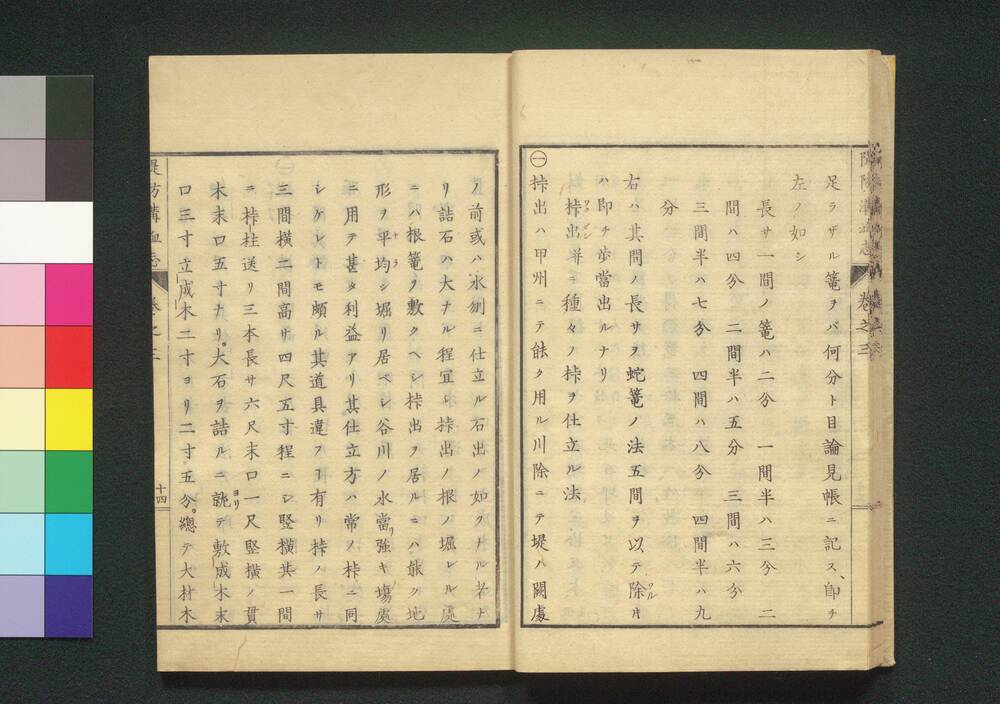 足ラザル篭ヲバ何分ト目論見帳ニ記ス、即チ
左ノ如シ
長サ一間ノ篭ハ二分 一間半ハ三分 二
間ハ四分 二間半ハ五分 三間ハ六分
三間半ハ七分 四間ハ八分 四間半ハ九
分
右ハ其間ノ長サヲ蛇篭ノ法五間ヲ以テ除ワル片
ハ即チ歩當出ルナリ
桛出并ニ種々ノ桛ヲ仕立ル法
㊀
桛出ハ甲州ニテ能ク用ル川除ニテ堤ハ闕處
卷之三
ノ前或ハ水刎ニ仕立ル石出ノ如クナル者ナ
リ詰石ハ大ナル程宜シ桛出ノ根ノ堀レル處
ニハ根篭ヲ敷クヘシ桛出ヲ居ルニハ能ク地
形ヲ平均ナラシ堀リ居ベシ谷川ノ水當リ強キ塲處
ニ用テ甚タ利益アリ其仕立方ハ常ノ桛ニ同
シケレトモ頗ル其道具違フヿ有リ桛ノ長サ
三間横二間高サ四尺五寸程ニシ竪横共一間
ニ桛柱送リ三本長サ六尺末口一尺ヨリ竪横ノ貫
木末口五寸ナリ。大石ヲ詰ルニ就テ敷成木末
口三寸立成木二寸ヨリ二寸五分。總テ大材木
堤防溝洫志
卷之三
十四